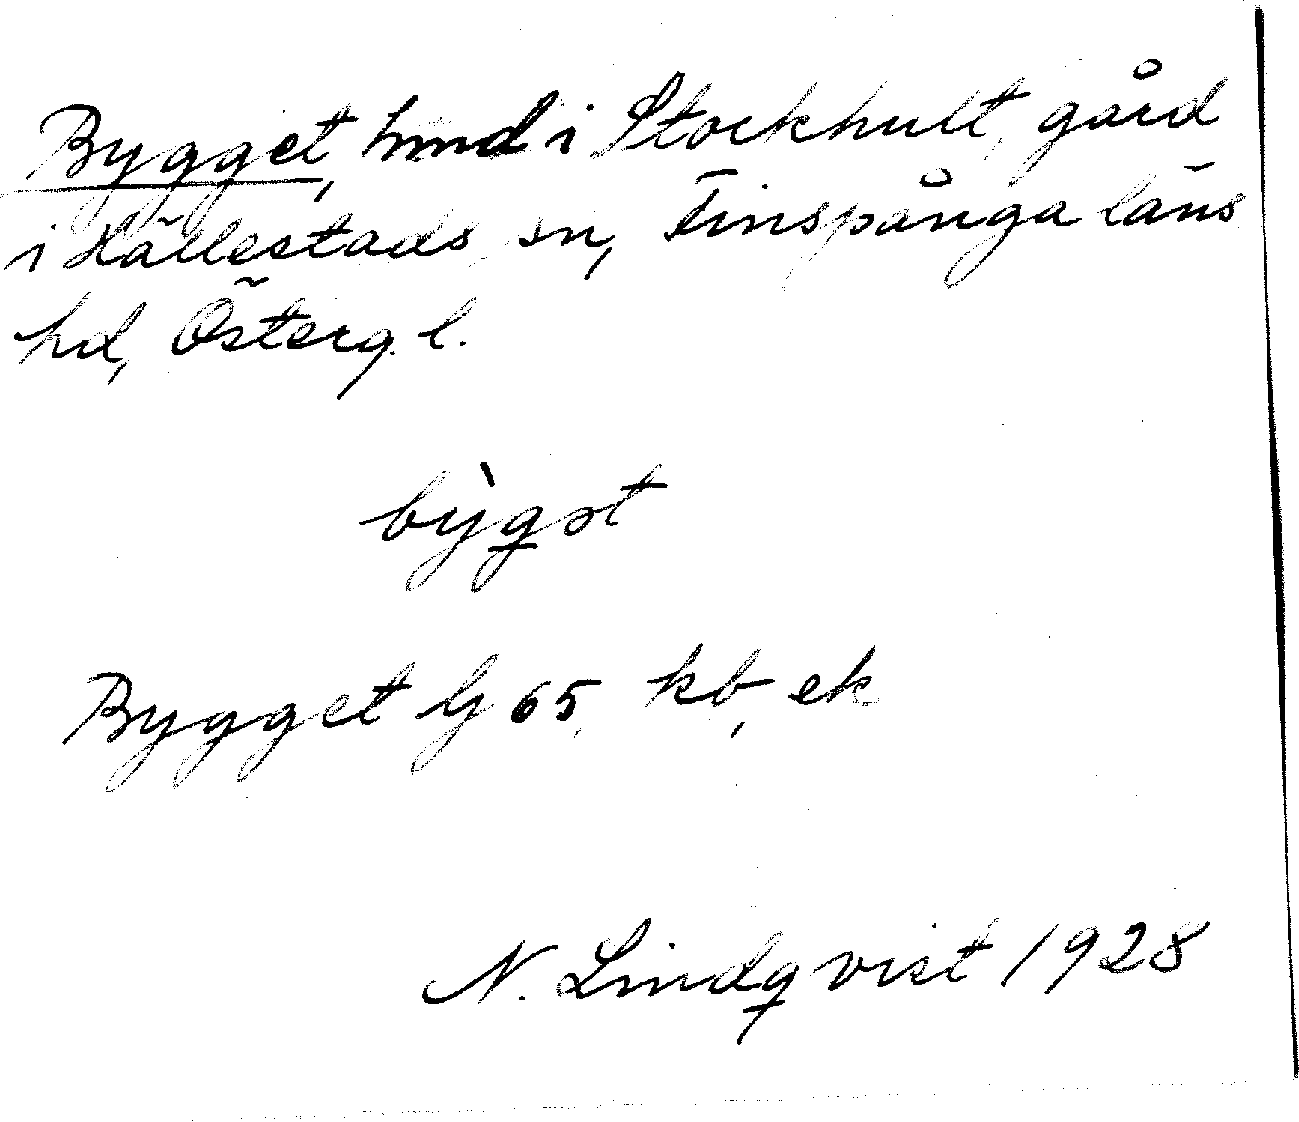 Bygget, hmd i Stockhult, gård
i Hällestads sn, Finspånga läns
hd, Österg. l.
bỳgət
Bygget G 65, kb, ek
N. Lindqvist 1928